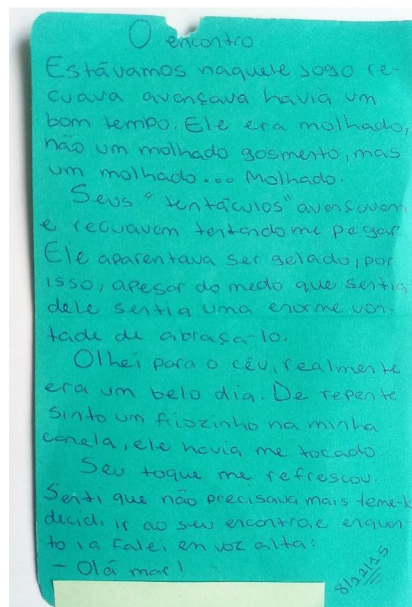 O encontro
Estávamos naquele jogo re-
cuava avençava havia um
bom tempo. Ele era molhado,
não um molhado gosmento, mas
um molhado... Molhado.
Seus "tentáculos" avençavam
e recuavam tentando me pegar.
Ele aparentava ser gelado, por
isso, apesar do medo que sentia
dele sentia uma enorme von-
tade de abraça-lo.
Olhei para o céu, realmente
era um belo dia. De repente
sinto um friozinho na minha
canela, ele havia me tocado
Seu toque me refrescou.
Senti que não precisava mais teme-lo
decidi ir ao seu encontro, e enquan-
to ia falei em voz alta:
- Olá mar!